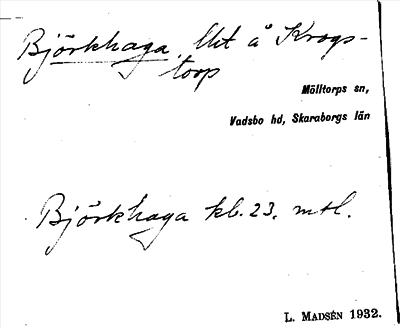 Björkhaga, lht å Krogs-
torp
Mölltorps sn,
Vadsbo hd, Skaraborgs län
Björkhaga kb. 23. mtl.
L. MADSÉN 1932.